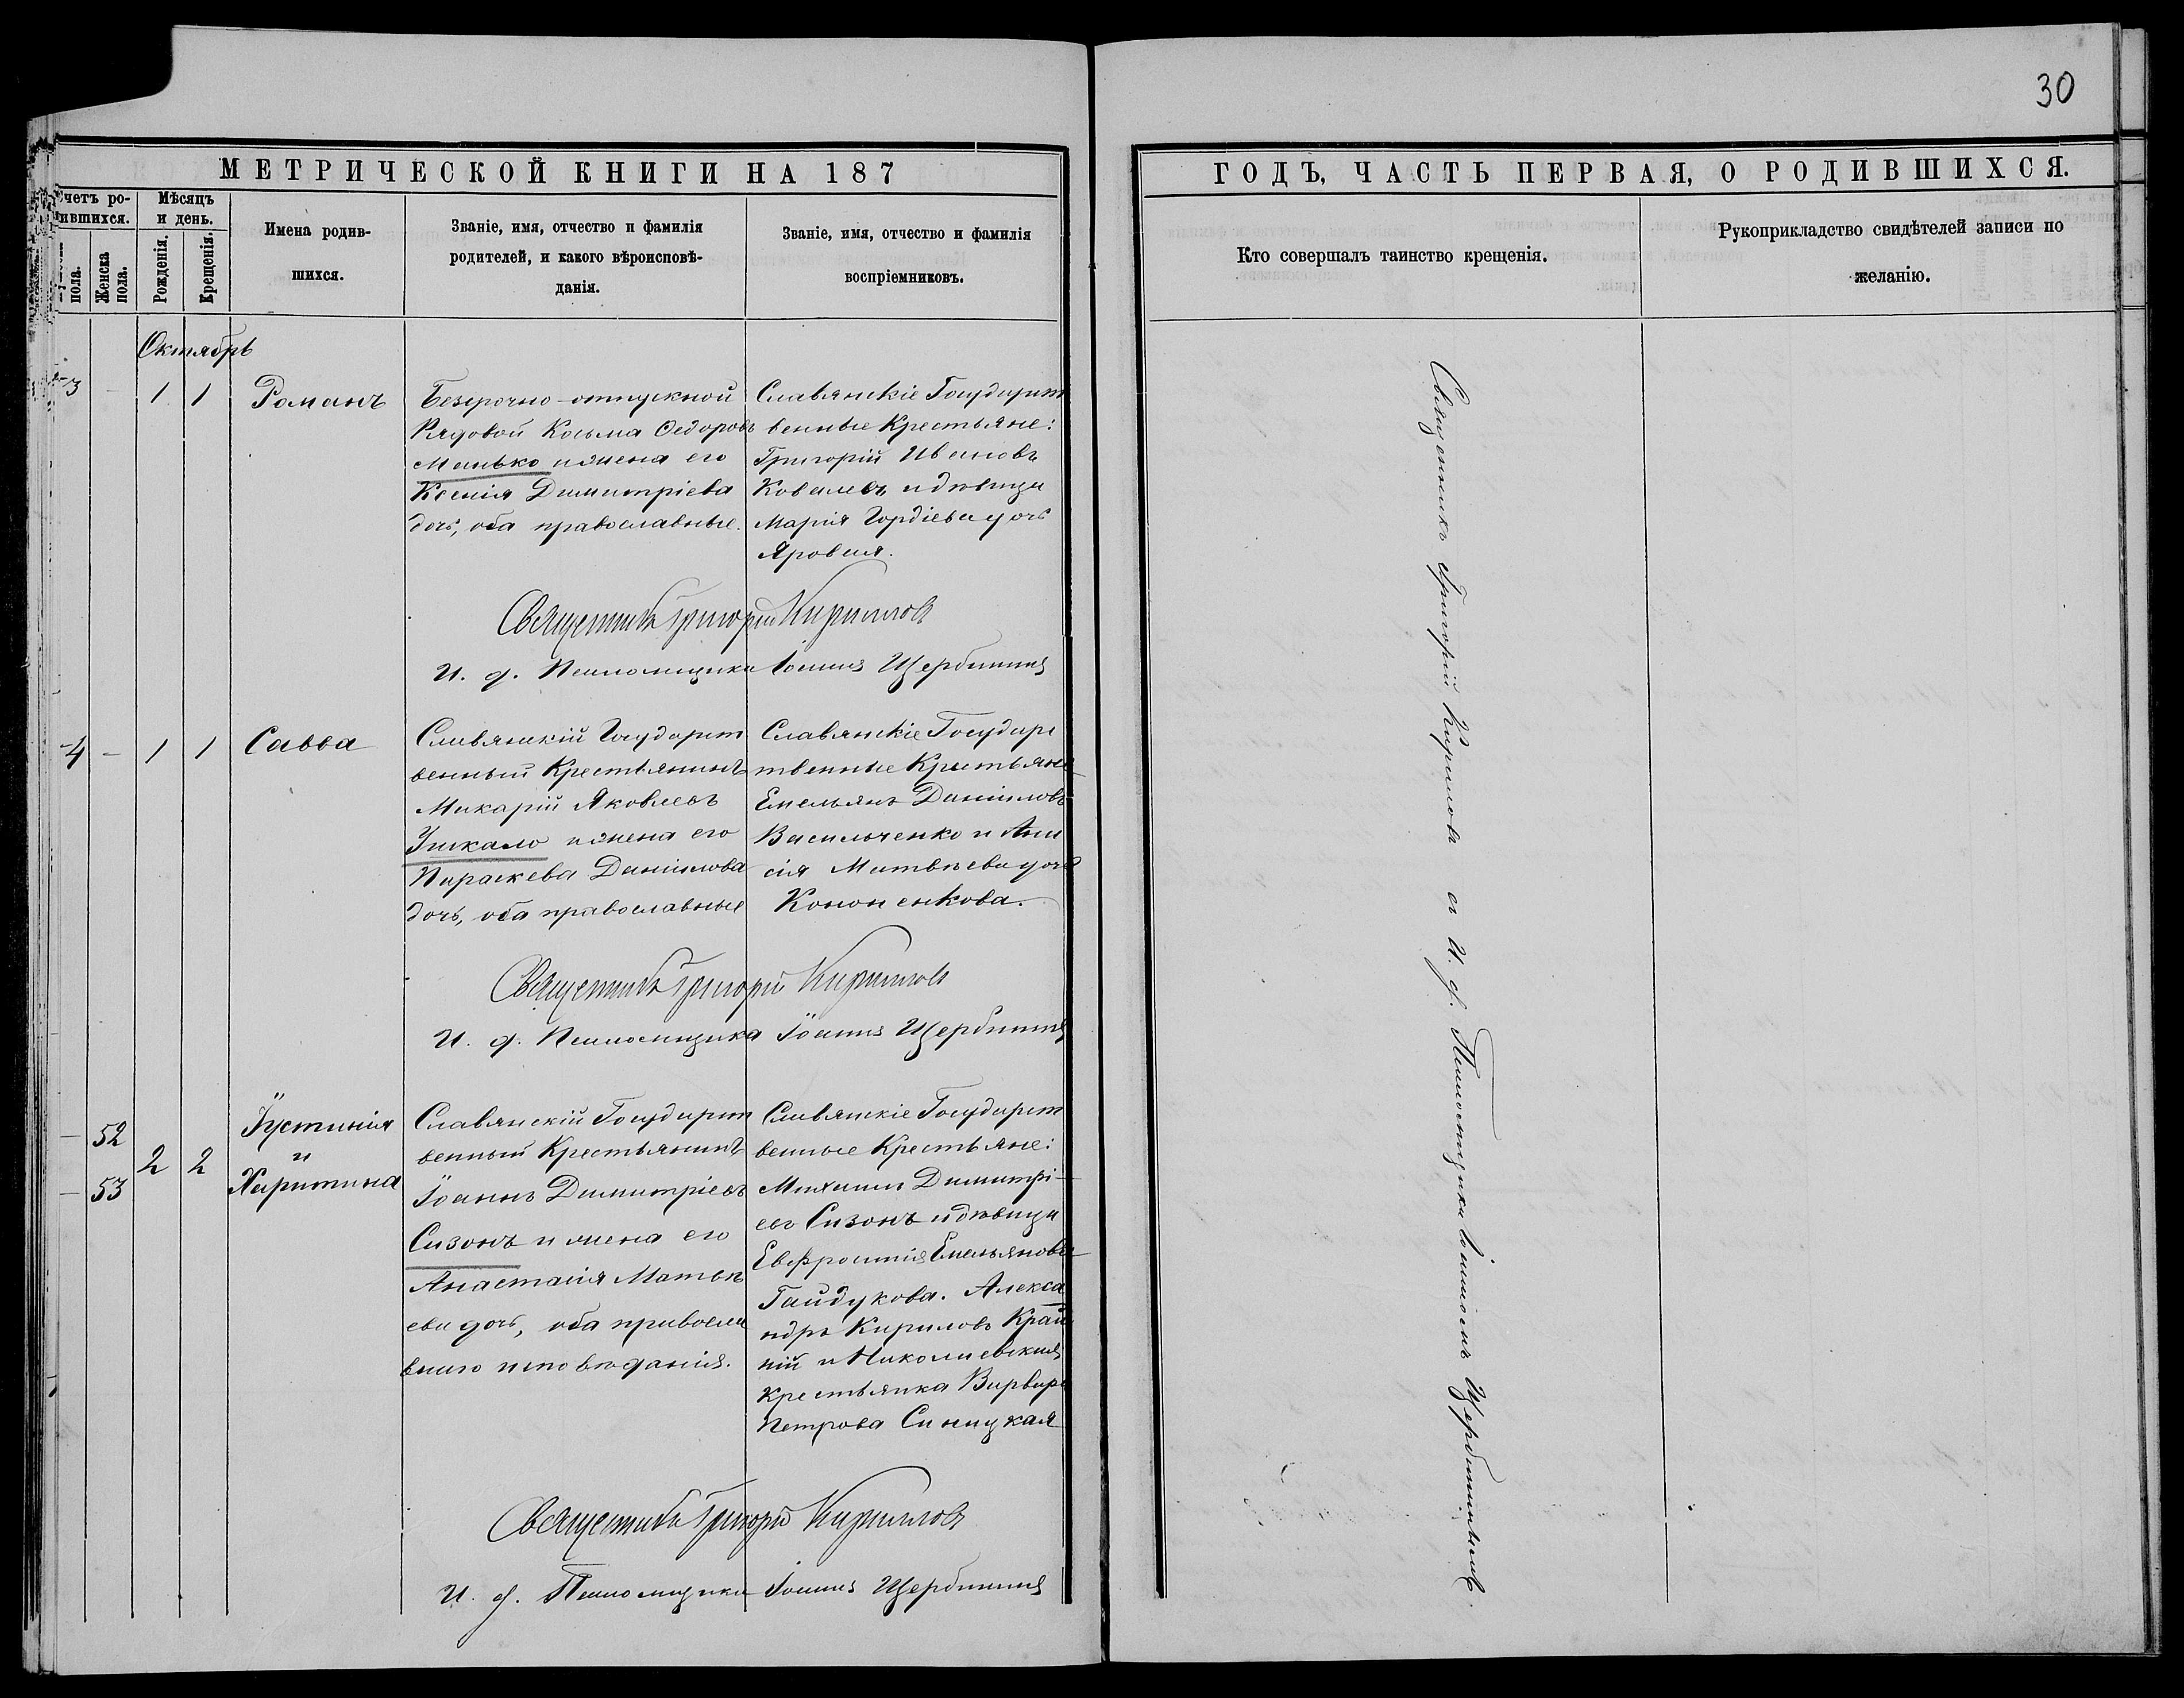 30
МЕТРИЧЕСКОЙ КНИГИ НА 187
Счетъ ро-
дившихся.
пола.
Женска
пола.
Мѣсяцъ
и день.
Рожденія.
Крещенія.
Имена родив-
шихся.
Званіе, имя, отчество и фамилія
родителей, и какого вѣроисповѣ-
данія.
Званіе, имя, отчество и фамилія
воспріемниковъ.
ГОДЪ, ЧАСТЬ ПЕРВАЯ, О РОДИВШИХСЯ.
Кто совершалъ таинство крещенія.
Рукоприкладство свидѣтелей записи по
желанію.
Октябрь
3 - 1 1 Романъ
Безсрочно-отпускной
Рядовой Косьма Ѳедоровъ
Манько и жена его
Ксенія Димитріева
дочь, оба православные.
Славянскіе Государст
венные Крестьяне:
Григорій Ивановъ
Ковалевъ и дѣвица
Марія Гордіева дочь
Яровая.
Священникъ Григорій Кириллов
И. д. Псаломщика Іоаннъ Щербининъ
4 - 1 1 Савва
Славянскій Государст
венный Крестьянинъ
Макарій Яковлевъ
Ушкало и жена его
Параскева Даніилова
дочь, оба православные
Славянскіе Государс
твенные Крестьяне
Емельянъ Даніиловъ
Васильченко и Ани
сія Матвѣева дочь
Кононенкова.
Священникъ Григорій Кириллов
И. д. Псаломщика Іоаннъ Щербининъ
- 52
- 53
2 2
Іустинія
и
Харитина
Славянскій Государст
венный Крестьянинъ
Іоаннъ Димитріевъ
Сизонъ и жена его
Анастасія Матвѣ
ева дочь, оба правосла
внаго исповѣданія.
Славянскіе Государст
венные Крестьяне:
Михаилъ Димитрі-
евъ Сизонъ и дѣвица
Евфросинія Емельянова
Гайдукова. Алекса
ндръ Кириловъ Край
ній и Николаевская
крестьянка Варвара
Петрова Синицкая
Священникъ Григорій Кириллов
И. д. Псаломщика Іоаннъ Щербининъ
Священникъ Григорій Кириллов съ И. д. Псаломщика Іоанномъ Щербининымъ.